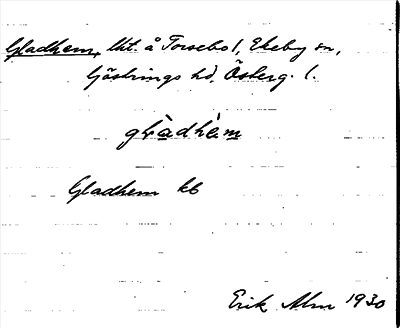 Gladhem, lht. å Torsebo 1, Ekeby sn,
Göstrings hd, Österg. l.
glàdhèm
Gladhem kb
Erik Alm 1930